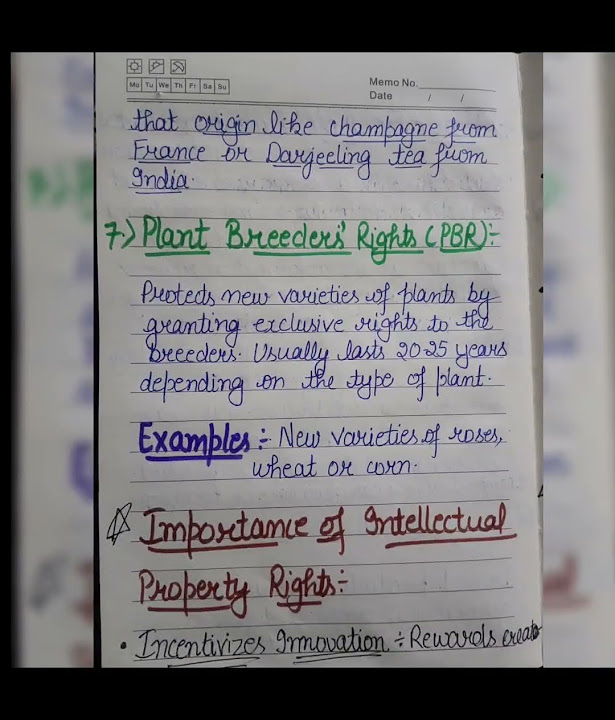 Mo Tu We Th Fr Sa Su
Memo No.
Date / /
that origin like champagne from
France or Darjeeling tea from
India.
7.) Plant Breeders' Rights (PBR):-
Protects new varieties of plants by
granting exclusive rights to the
breeders. Usually lasts 20-25 years
depending on the type of plant.
Examples :- New varieties of roses,
wheat or corn.
Importance of Intellectual
Property Rights:-
• Incentivizes Innovation :- Rewards